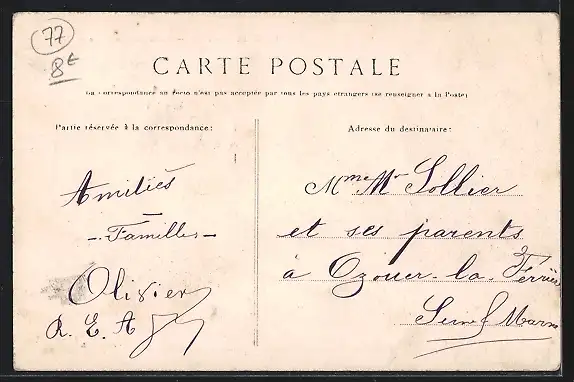 77
8€
CARTE POSTALE
La correspondance au recto n'est pas acceptée par tous les pays étrangers (se renseigner à la Poste)
Partie réservée à la correspondance:
Adresse du destinataire:
Amitiés
- Familles -
Olivier
R. E. A
Mme Mr Sollier
et ses parents
à Ozouer-la-Ferrière
Seine & Marne